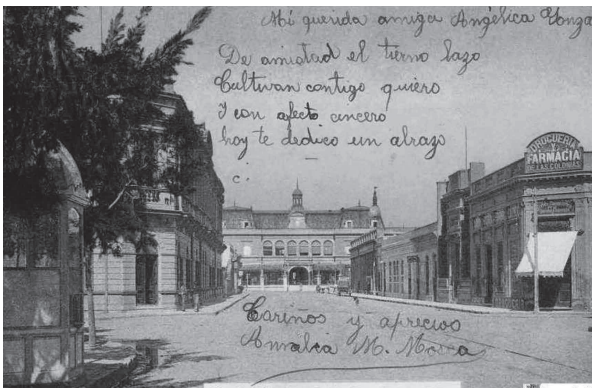 Mi querida amiga Angélica
De amistad el tierno lazo
Cultivar contigo quiero
Y con afecto cincero
hoy te dedico un abrazo
DROGUERIA
Y
FARMACIA
DE LAS COLONIAS
Cariños y aprecios
Amalia M. Mosca